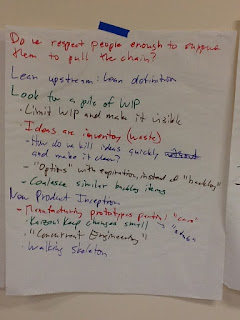 Do we respect people enough to suppose
them to pull the chain?
Lean upstream: Lean definition
Look for a pile of WIP
· Limit WIP and make it visible
· Ideas are inventory (waste)
- How do we kill ideas quickly
and make it clean?
- "Options" with expiration, instead of "backlog"
· Coalesce similar backlog items
New Product Inception
- Manufacturing prototypes partial "care"
· Kaizen: Keep changes small
· "Concurrent Engineering"
· Walking skeleton